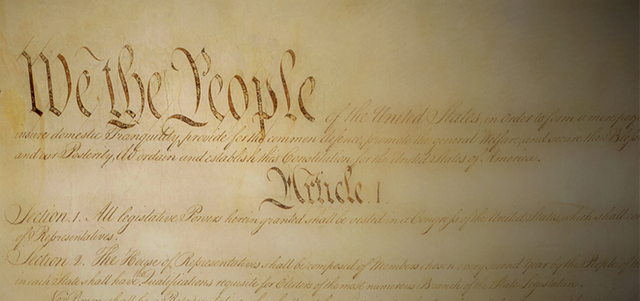 We the People of the United States, in Order to form a more
insure domestic Tranquility, provide for the common defence, promote the general Welfare, and secure the
and our Posterity, do ordain and establish this Constitution for the United States of America.
Article 1.
Section 1. All legislative Powers herein granted shall be vested in a Congress of the United States, which shall
of Representatives.
Section 2. The House of Representatives shall be composed of Members chosen every second Year by the People of
in each State shall have the Qualifications requisite for Electors of the most numerous Branch of the State Legislature.